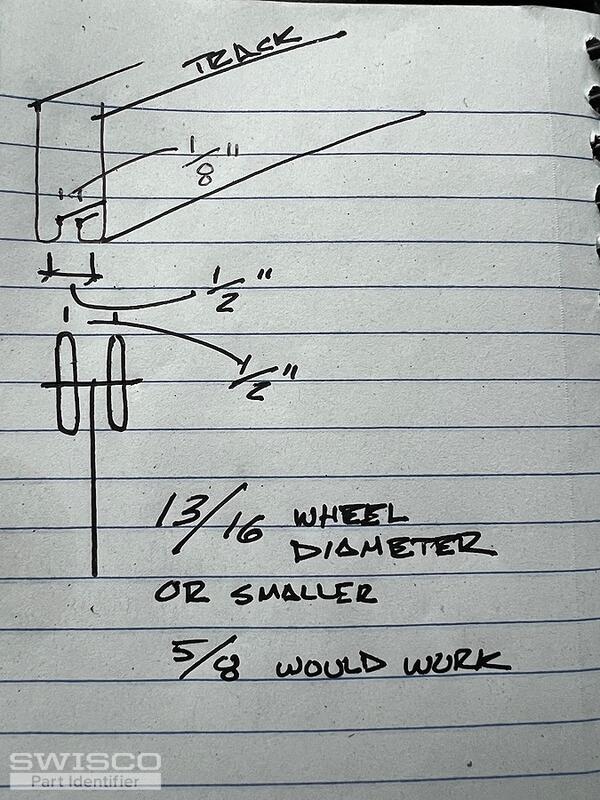 TRACK
1/8"
1/2"
1/2"
13/16 WHEEL
DIAMETER
OR SMALLER
5/8 WOULD WORK
SWISCO
Part Identifier